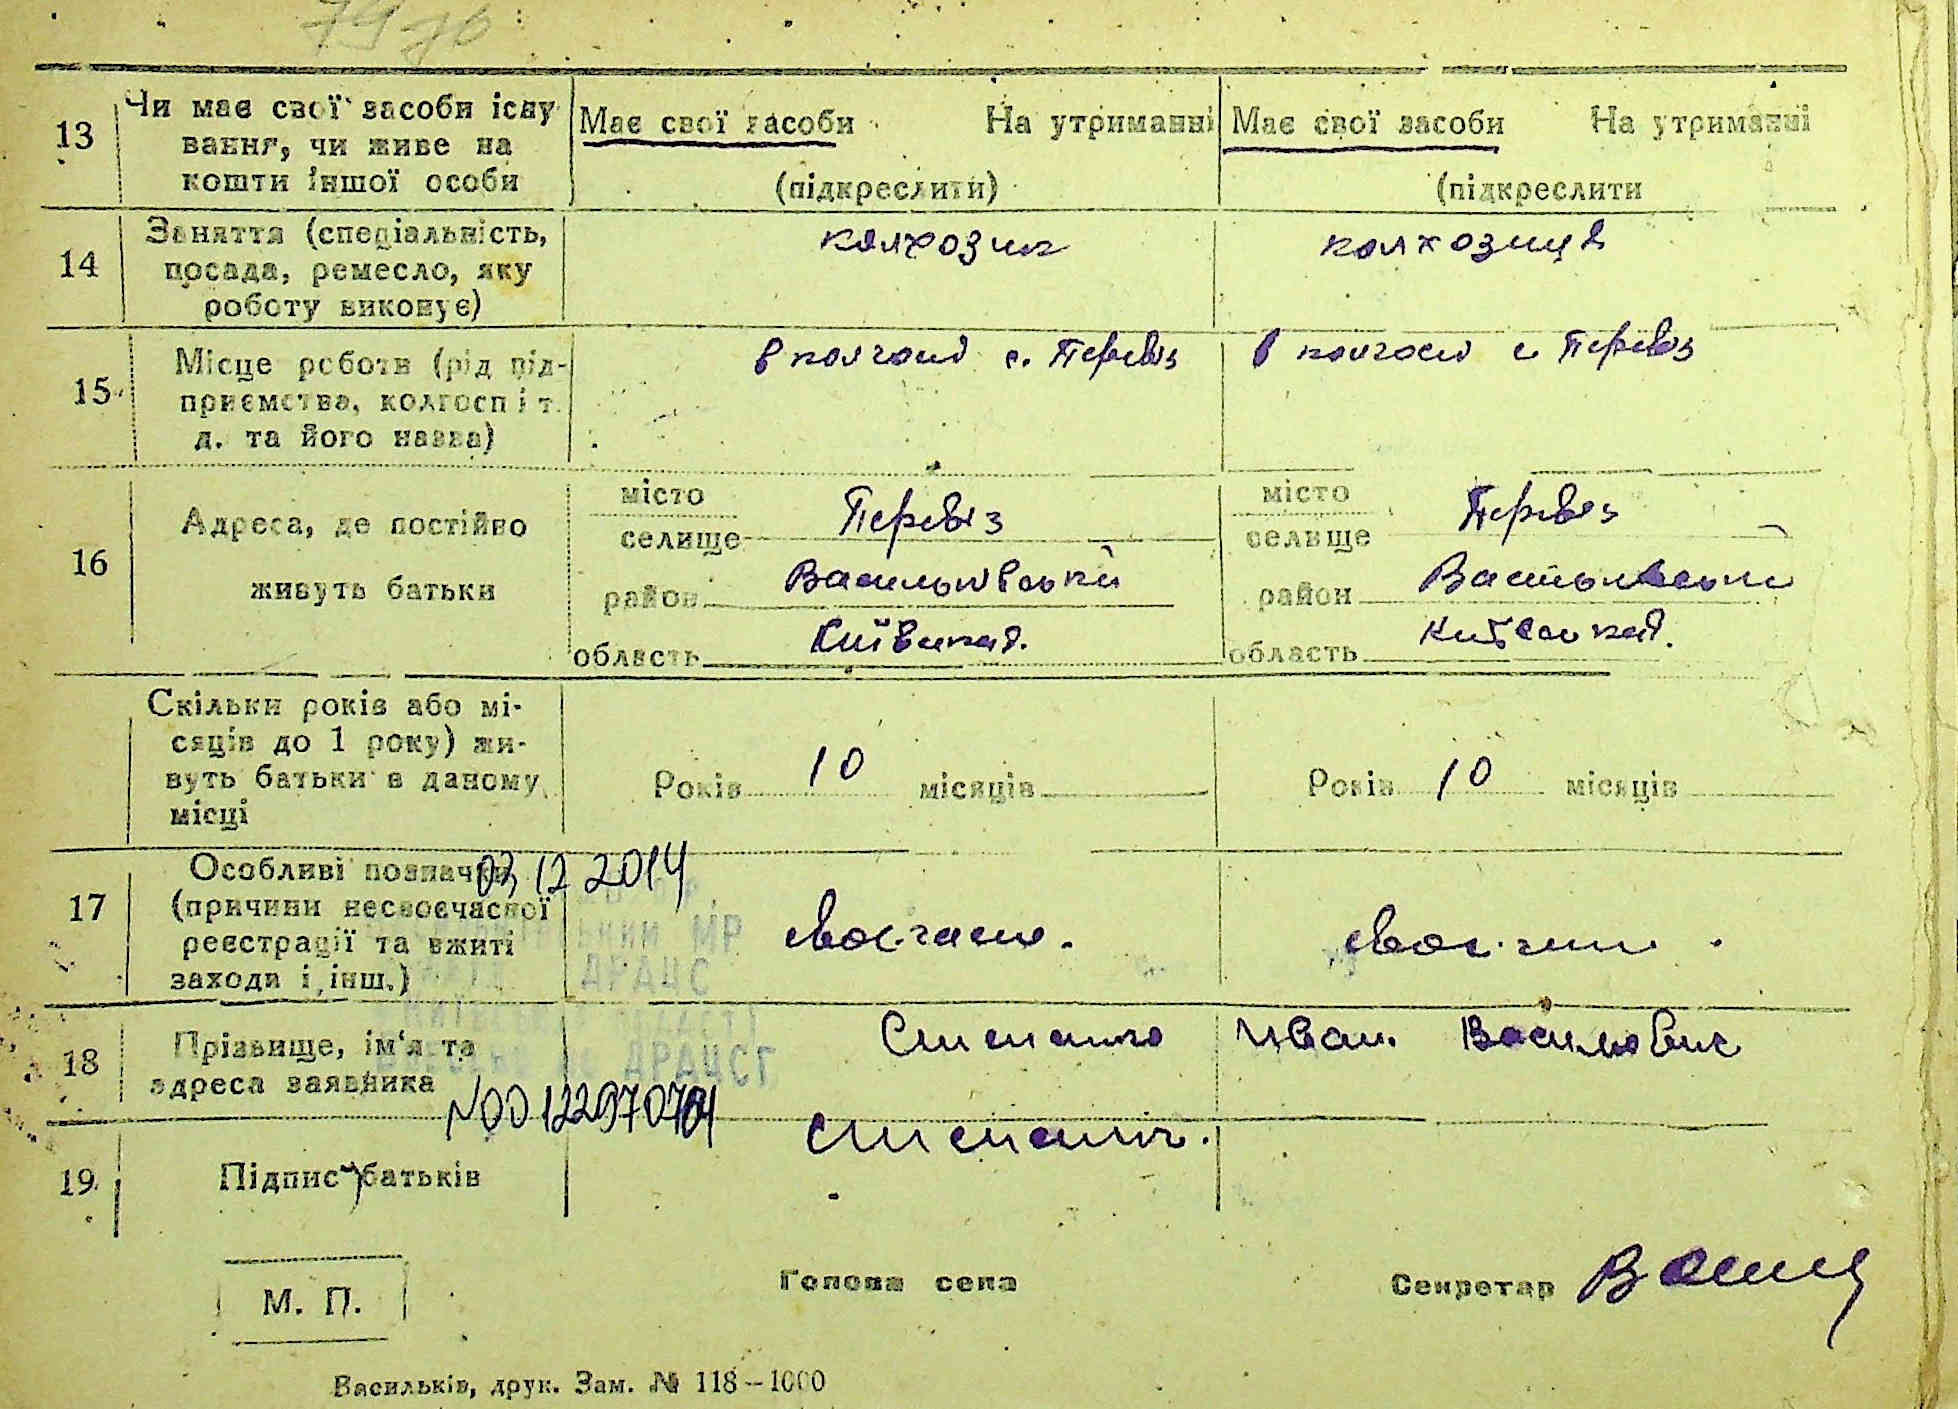 13 Чи має свої засоби існу
вання, чи живе на
кошти іншої особи
Має свої засоби На утриманні Має свої засоби На утриманні
(підкреслити) (підкреслити
14 Заняття (спеціальність,
посада, ремесло, яку
роботу виконує)
колхозник колхозниця
15 Місце роботи (рід під-
приємства, колгосп і т.
д. та його назва)
в колгоспі с. Перевіз в колгоспі с. Перевіз
16 Адреса, де постійно
живуть батьки
місто
селище Перевіз
район Васильківський
область Київська
місто
селище Перевіз
район Васильківський
область Київська
Скільки років або мі-
сяців до 1 року) жи-
вуть батьки в даному
місці
Років 10 місяців Років 10 місяців
17 Особливі позначки
(причини несвоєчасної
реєстрації та вжиті
заходи і інш.)
03 12 2014
МР
ДРАЦС
ДРАЦСГ
N00122970701
своєчасно. своєчасно.
18 Прізвище, ім'я та
адреса заявника
Степанко Иван Василювич
19 Підпис батьків
М. П.
Голова села Секретар
Васильків, друк. Зам. № 118—1000